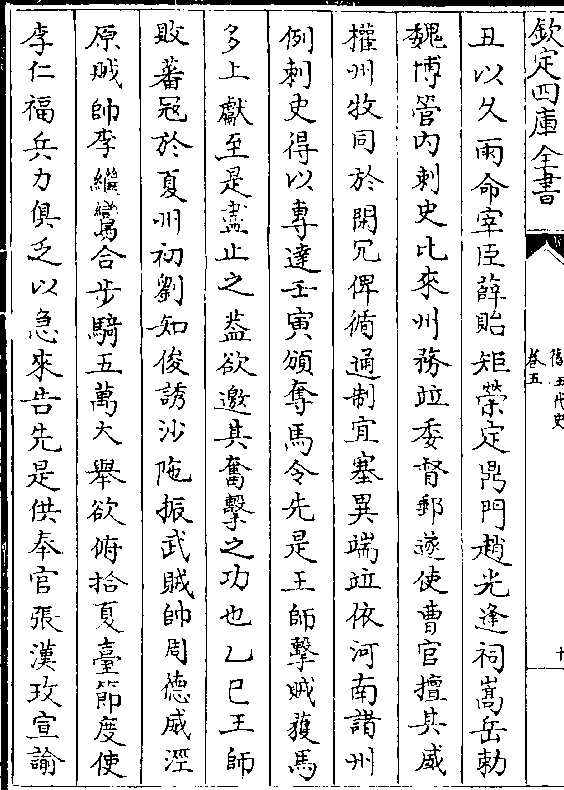 欽定四庫全書
舊五代史
卷五
十
丑以久雨命宰臣薛貽矩禜定鼎門趙光逢祠嵩岳勅
魏博管內刺史比來州務竝委督郵遂使曹官擅其威
權州牧同於閑冗俾循通制宜塞異端竝依河南諸州
例刺史得以專達壬寅頒奪馬令先是王師擊賊獲馬
多上獻至是盡止之葢欲邀其奮擊之功也乙巳王師
敗蕃寇於夏州初劉知俊誘沙陁振武賊帥周德威涇
原賊帥李繼鸞合步騎五萬大舉欲俯拾夏臺節度使
李仁福兵力俱乏以急來告先是供奉官張漢玫宣諭